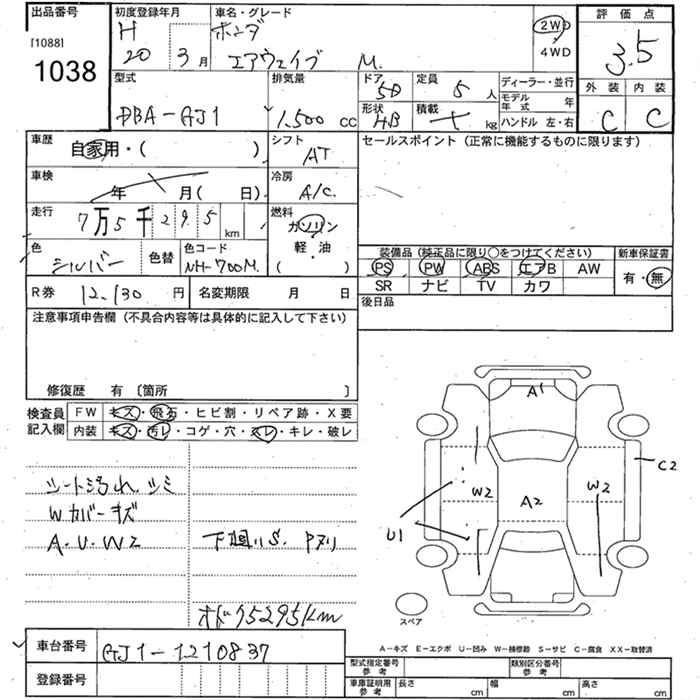 出品番号
[1088]
1038
初度登録年月
H
20 3月
車名・グレード
ホンダ
エアウェイブ M.
2WD
4WD
評価点
3.5
外装 内装
C C
型式
DBA-GJ1
排気量
1.500 cc
ドア 5D
定員 5人
形状 HB
積載 kg
ディーラー・並行
モデル年式 年
ハンドル 左・右
車歴
自家用・( )
シフト
AT
セールスポイント (正常に機能するものに限ります)
車検
年 月( 日)
冷房
A/C.
走行
7万5千295km
燃料
ガソリン
軽・油
( )
色
シルバー
色替
色コード
NH-700M.
装備品(純正品に限り○をつけてください)
新車保証書
PS PW ABS エアB AW
SR ナビ TV カワ
有・無
R券 12,130円
名変期限 月 日
後日品
注意事項申告欄 (不具合内容等は具体的に記入して下さい)
修復歴 有 〔箇所 〕
検査員
記入欄
FW キズ・飛石・ヒビ割・リペア跡・X要
内装 キズ・汚レ・コゲ・穴・スレ・キレ・破レ
シート汚れ シミ
Wカバーキズ
A.U.W2
下廻りS. Pヌリ
オド75295km
A1
W2
A2
W2
C2
U1
スペア
A-キズ E-エクボ U-凹み W-補修跡 S-サビ C-腐食 XX-取替済
車台番号 GJ1-1210837
登録番号
型式指定番号
参考
類別区分番号
参考
車庫証明用
参考
長さ cm
幅 cm
高さ cm